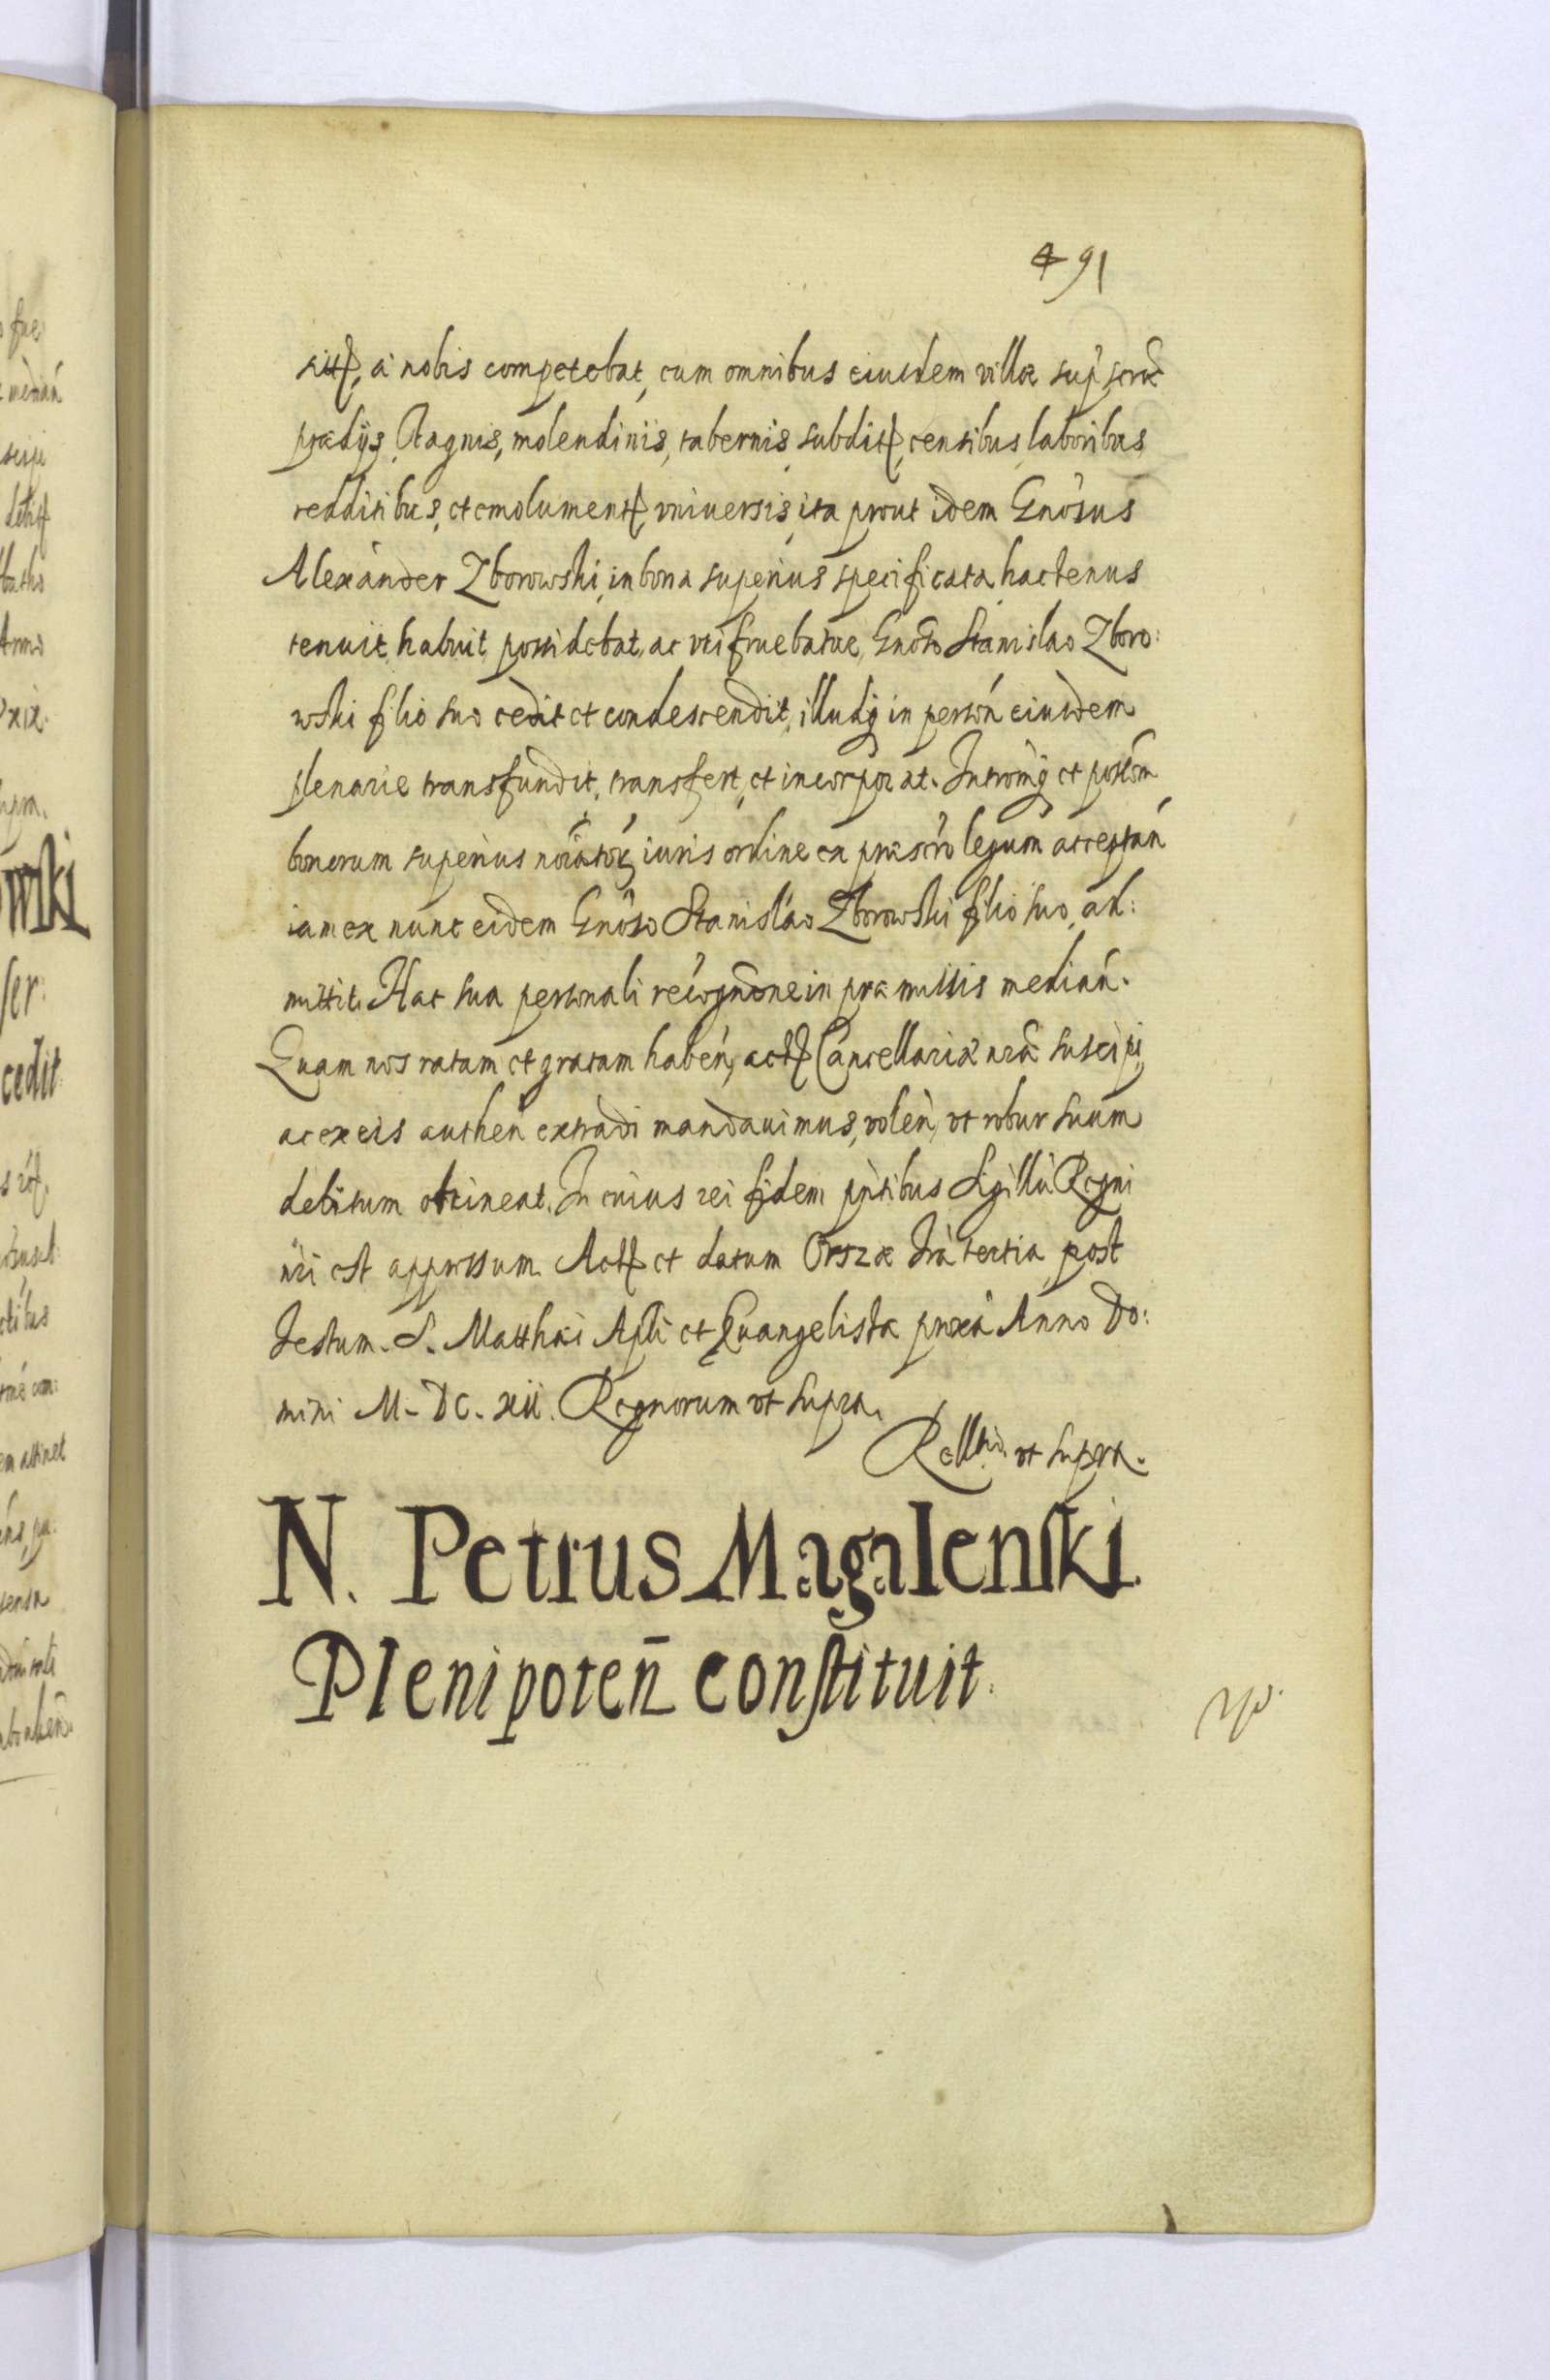 491
sit, a nobis competebat, cum omnibus eiusdem villæ sup scræ
prædijs, stagnis, molendinis, tabernis, subdit, censibus, laboribus,
redditibus, et emolument, vniuersis, ita prout idem Gnosus
Alexander Zborowski, in bona superius specificata, hactenus
tenuit, habuit, possidebat, ac vti fruebatur, Gnoso Stanislao Zboro:
wski filio suo cedit et condescendit, illudq in person eiusdem
plenarie transfundit, transfert, et incorporat. Intromq et possom
bonorum superius noiator iuris ordine ex præscro legum acceptan
iam ex nunc eidem Gnoso Stanislao Zborowski filio suo, ad:
mittit. Hac sua personali recognone in præmissis median.
Quam nos ratam et gratam haben, act Cancellariæ nræ suscipi,
ac ex eis authen extradi mandauimus, volen, vt robur suum
debitum obtineat. In cuius rei fidem pntibus Sigillu Regni
nri est appressum. Act et datum Orszæ fra tertia post
festum. S. Matthæi Apli et Euangelistæ proxa Anno Do:
mini M. DC. xii. Regnorum vt supra.
Relltio vt supra.
N. Petrus Magalenski
Plenipoten constituit.